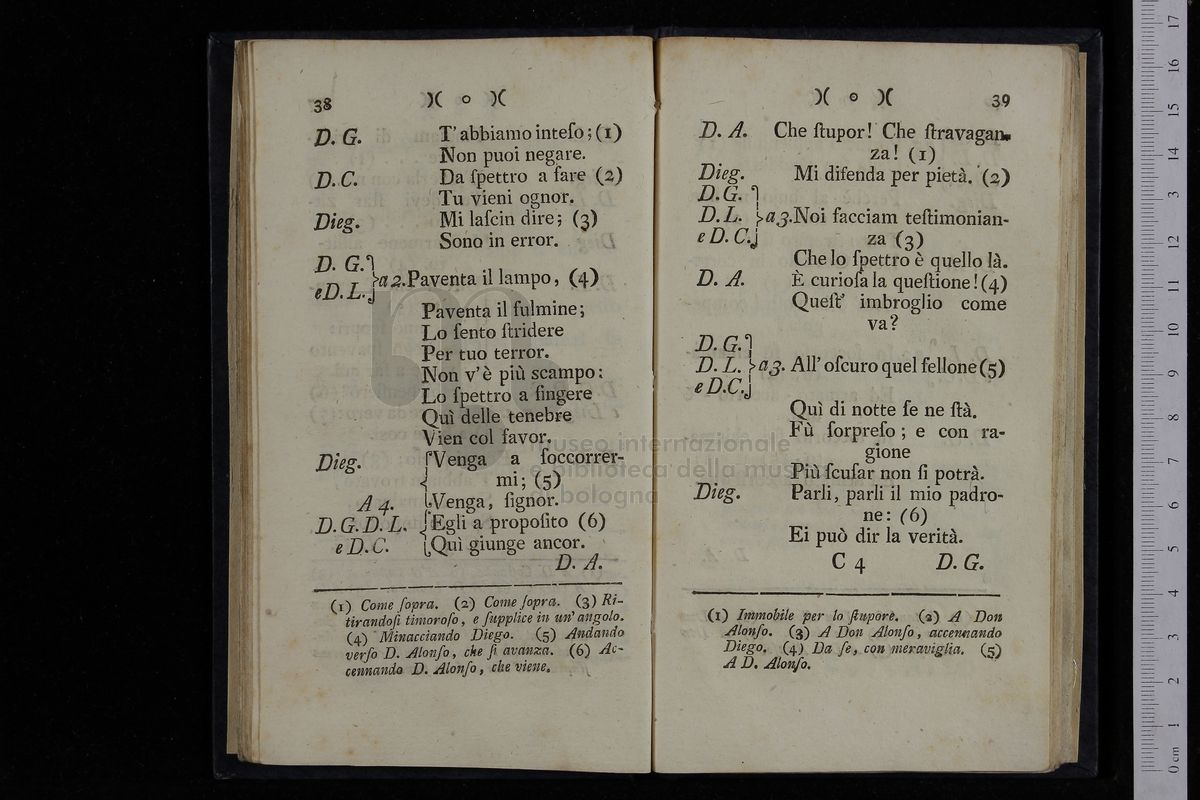 38 )( o )(
D. G. T' abbiamo inteſo; (1)
Non puoi negare.
D. C. Da ſpettro a fare (2)
Tu vieni ognor.
Dieg. Mi laſcin dire; (3)
Sono in error.
D. G.
e D. L. } a 2. Paventa il lampo, (4)
Paventa il fulmine;
Lo ſento ſtridere
Per tuo terror.
Non v' è più scampo:
Lo ſpettro a fingere
Quì delle tenebre
Vien col favor.
Dieg. Venga a ſoccorrer-
mi; (5)
A 4. Venga, ſignor.
D. G. D. L. Egli a propoſito (6)
e D. C. Quì giunge ancor.
D. A.
(1) Come ſopra. (2) Come ſopra. (3) Ri-
tirandoſi timoroſo, e ſupplice in un' angolo.
(4) Minacciando Diego. (5) Andando
verſo D. Alonſo, che ſi avanza. (6) Ac-
cennando D. Alonſo, che viene.
)( o )( 39
D. A. Che ſtupor! Che ſtravagan-
za! (1)
Dieg. Mi difenda per pietà. (2)
D. G.
D. L. } a 3. Noi facciam teſtimonian-
e D. C. za (3)
Che lo ſpettro è quello là.
D. A. È curioſa la queſtione! (4)
Queſt' imbroglio come
va?
D. G.
D. L. } a 3. All' oſcuro quel fellone (5)
e D. C.
Quì di notte ſe ne ſtà.
Fù ſorpreſo; e con ra-
gione
Più ſcuſar non ſi potrà.
Dieg. Parli, parli il mio padro-
ne: (6)
Ei può dir la verità.
C 4 D. G.
(1) Immobile per lo ſtupore. (2) A Don
Alonſo. (3) A Don Alonſo, accennando
Diego. (4) Da ſe, con meraviglia. (5)
A D. Alonſo.
museo internazionale
e biblioteca della musica
di bologna
0 cm 1 2 3 4 5 6 7 8 9 10 11 12 13 14 15 16 17